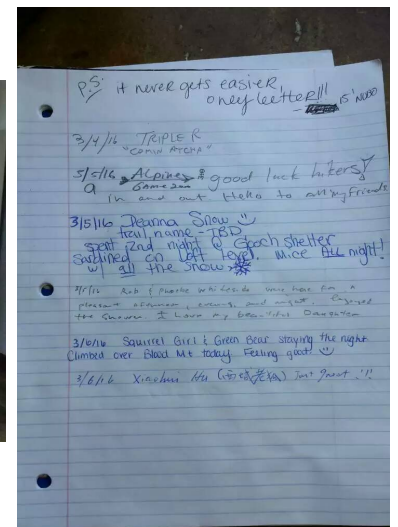 P.S. it never gets easier,
only better!!!
15' NOBO
3/4/16 TRIPLE R
"COMIN ATCHA"
5/5/16 Alpine & good luck hikers!
a Gameson
in and out Hello to all my Friends
3/5/16 Deanna Snow
trail name - TBD
spent 2nd night @ Gooch shelter
Sardined on loft level. Mice ALL night!
w/ all the snow
3/5/16 Rob & Phoebe Whiteside were here for a
pleasant afternoon, evening, and night. Enjoyed
the snow. I Love my beautiful Daughter
3/6/16 Squirrel Girl & Green Bear staying the night
Climbed over Blood Mt today. Feeling good.
3/6/16 Xiaohui Hu Just great!!!